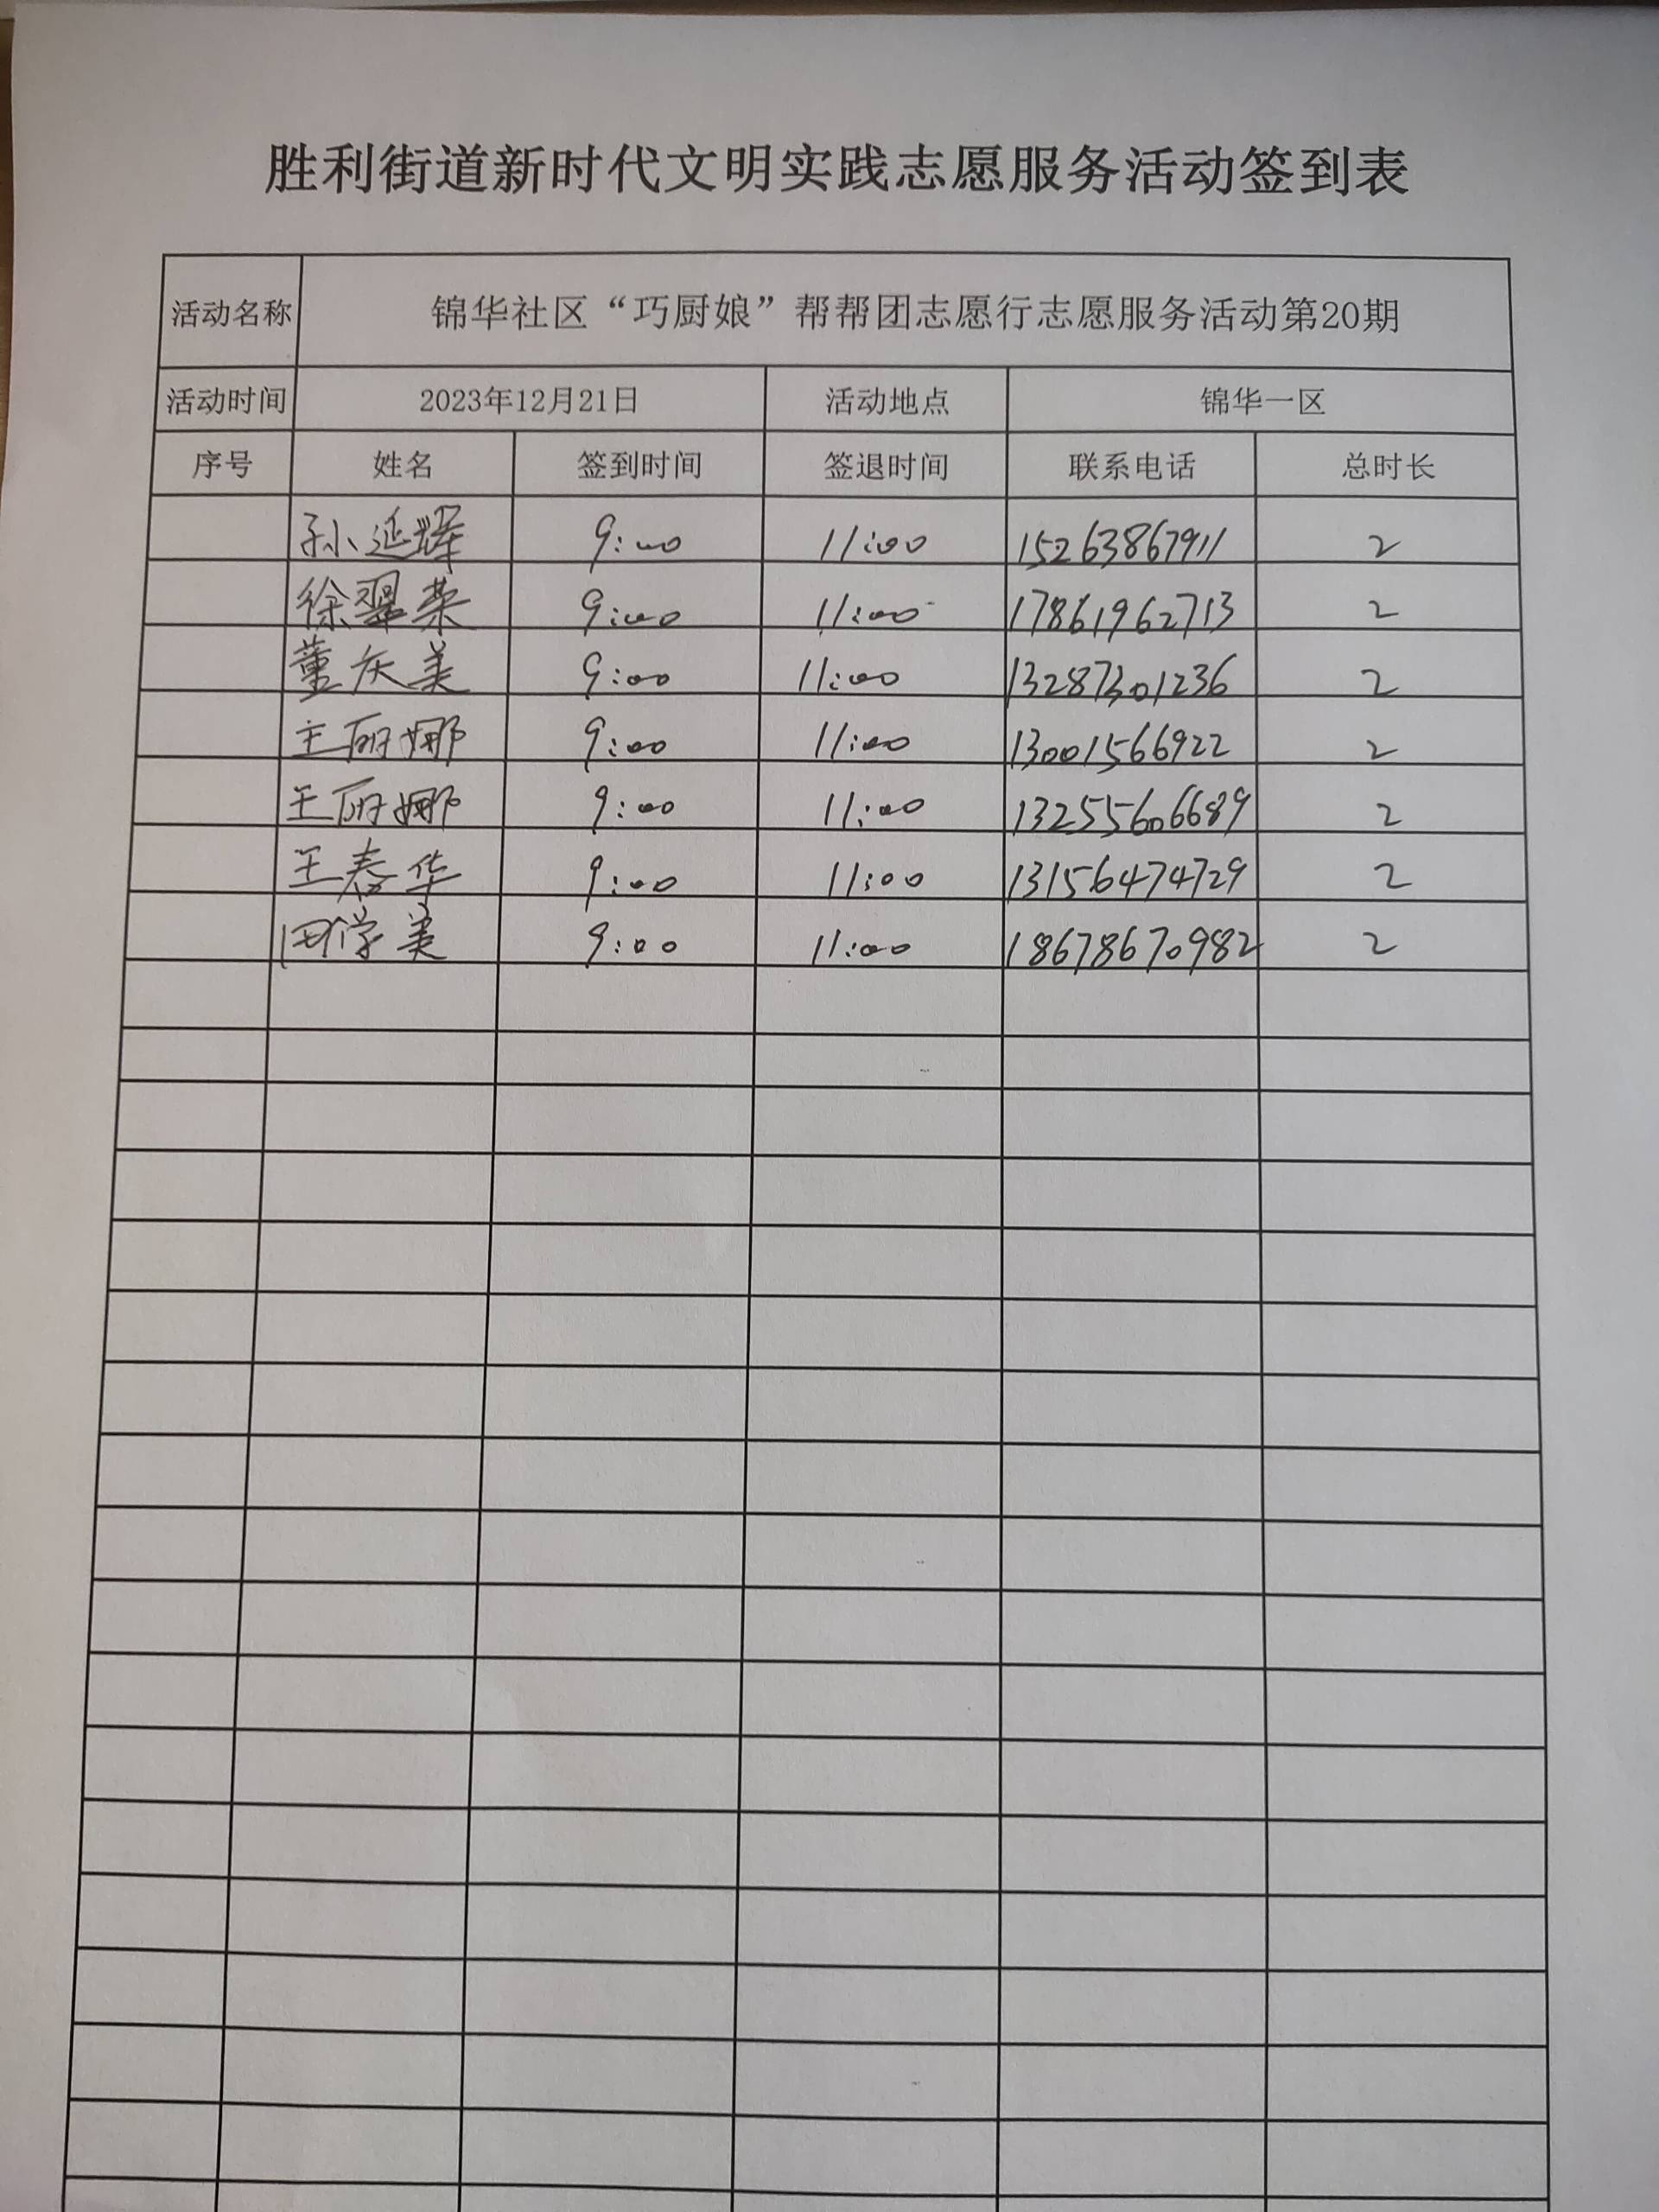 胜利街道新时代文明实践志愿服务活动签到表
活动名称 锦华社区“巧厨娘”帮帮团志愿行志愿服务活动第20期
活动时间 2023年12月21日 活动地点 锦华一区
序号 姓名 签到时间 签退时间 联系电话 总时长
孙延辉 9:00 11:00 15263867911 2
徐翠荣 9:00 11:00 17861962713 2
董庆美 9:00 11:00 13287301236 2
王丽娜 9:00 11:00 13001566922 2
王丽娜 9:00 11:00 13255606689 2
王春华 9:00 11:00 13156474729 2
田学美 9:00 11:00 18678670982 2